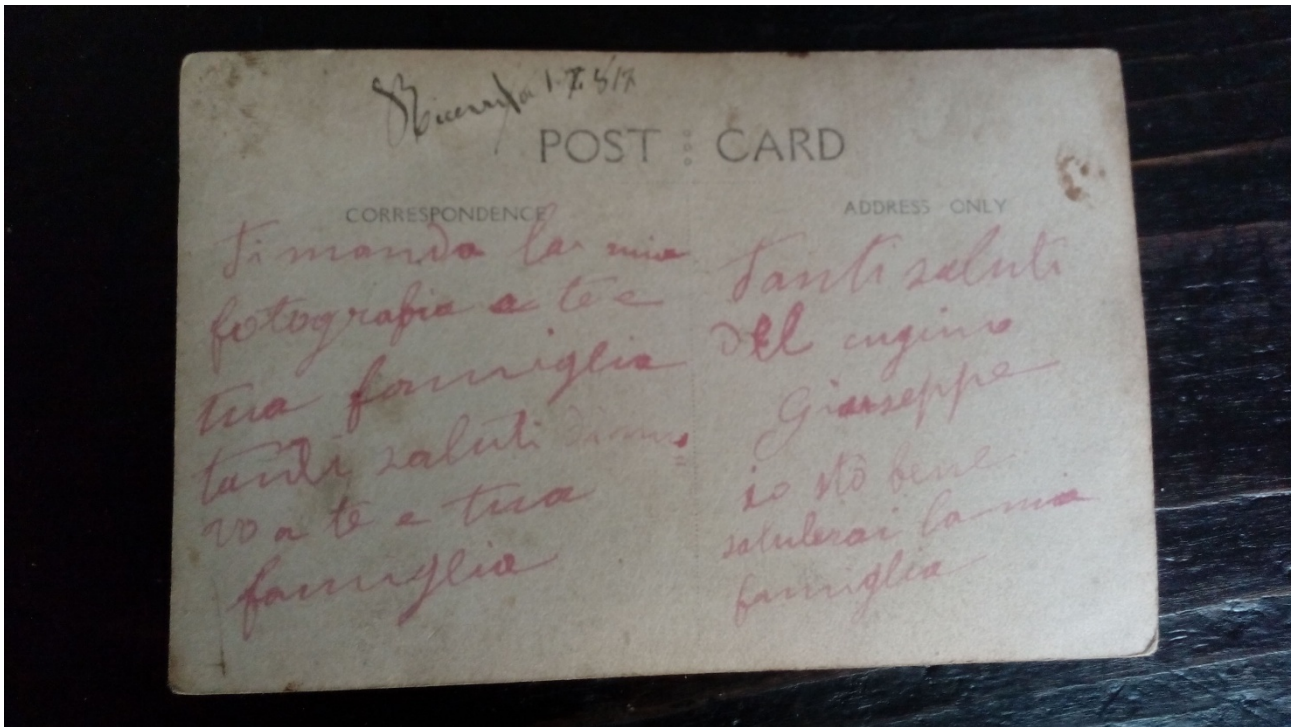 POST CARD
CORRESPONDENCE
Ti mando la mia
fotografia a te e
tua famiglia
tanti saluti
vo a te e tua
famiglia
ADDRESS ONLY
Tanti saluti
del cugino
Giuseppe
io stò bene
saluterai la mia
famiglia